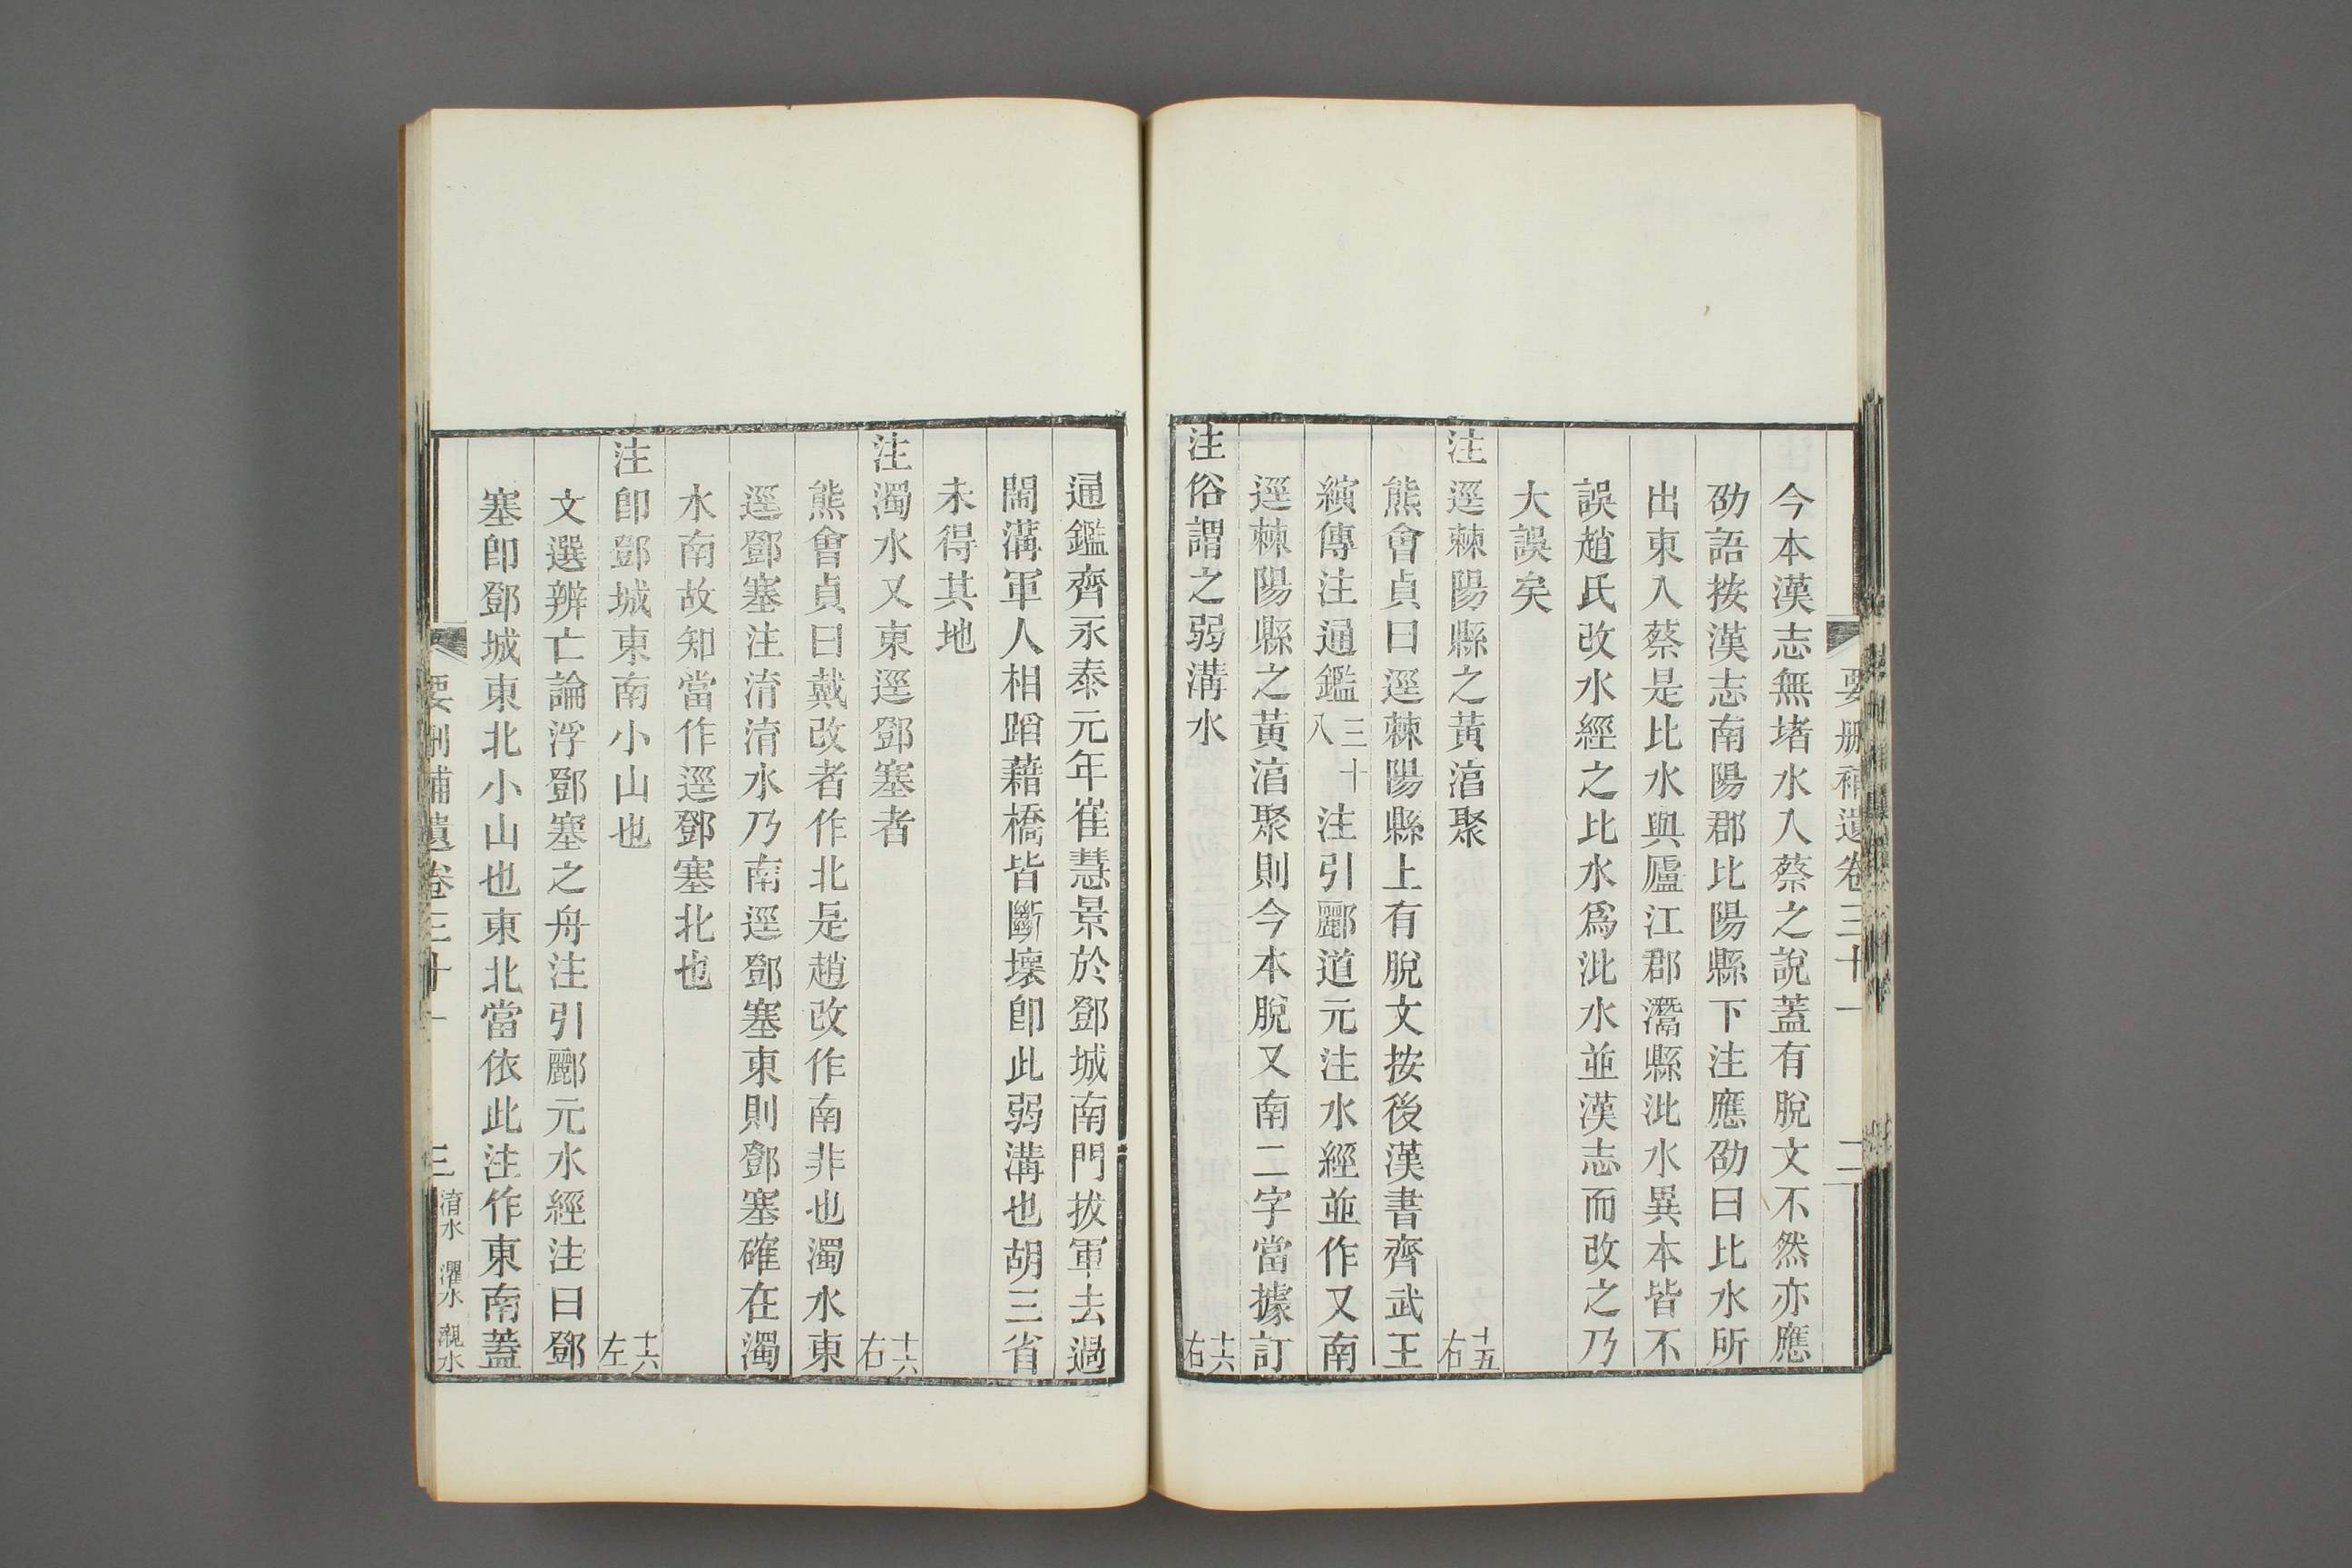 要刪補遺卷三十一 二
今本漢志無堵水入蔡之說蓋有脫文不然亦應
劭語按漢志南陽郡比陽縣下注應劭曰比水所
出東入蔡是比水與廬江郡灊縣沘水異本皆不
誤趙氏改水經之比水爲沘水並漢志而改之乃
大誤矣
注逕棘陽縣之黃淯聚 十五右
熊會貞曰逕棘陽縣上有脫文按後漢書齊武王
縯傳注通鑑三十八注引酈道元注水經並作又南
逕棘陽縣之黃淯聚則今本脫又南二字當據訂
注俗謂之弱溝水 十六右
通鑑齊永泰元年崔慧景於鄧城南門拔軍去過
閙溝軍人相蹈藉橋皆斷壞卽此弱溝也胡三省
未得其地
注濁水又東逕鄧塞者 十六右
熊會貞曰戴改者作北是趙改作南非也濁水東
逕鄧塞注淯淯水乃南逕鄧塞東則鄧塞確在濁
水南故知當作逕鄧塞北也
注卽鄧城東南小山也 十六左
文選辨亡論浮鄧塞之舟注引酈元水經注曰鄧
塞卽鄧城東北小山也東北當依此注作東南蓋
要刪補遺卷三十一 三 淯水 灈水 瀙水